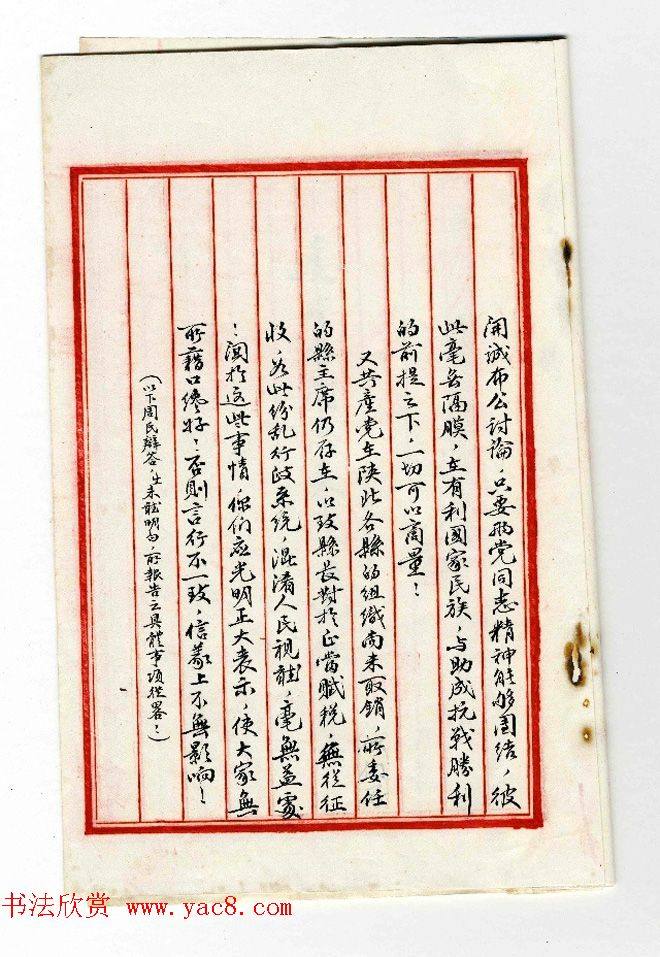 開誠布公討論，只要兩党同志精神能够團结，彼
此毫無隔膜，在有利國家民族，与助成抗战勝利
的前提之下，一切可以商量！
又共產党在陕北各縣的組織尚未取銷，所委任
的縣主席仍存在，以致縣長對於正當賦税，無從征
收，為此紛乱行政系统，混淆人民視聽，毫無益處
！関於这些事情，你们应光明正大表示，使大家無
所藉口纔好！否則言行不一致，信義上不無影响！
（以下周氏辯答，生未能明白，所報告之具體事項從畧！）
书法欣赏 www.yac8.com